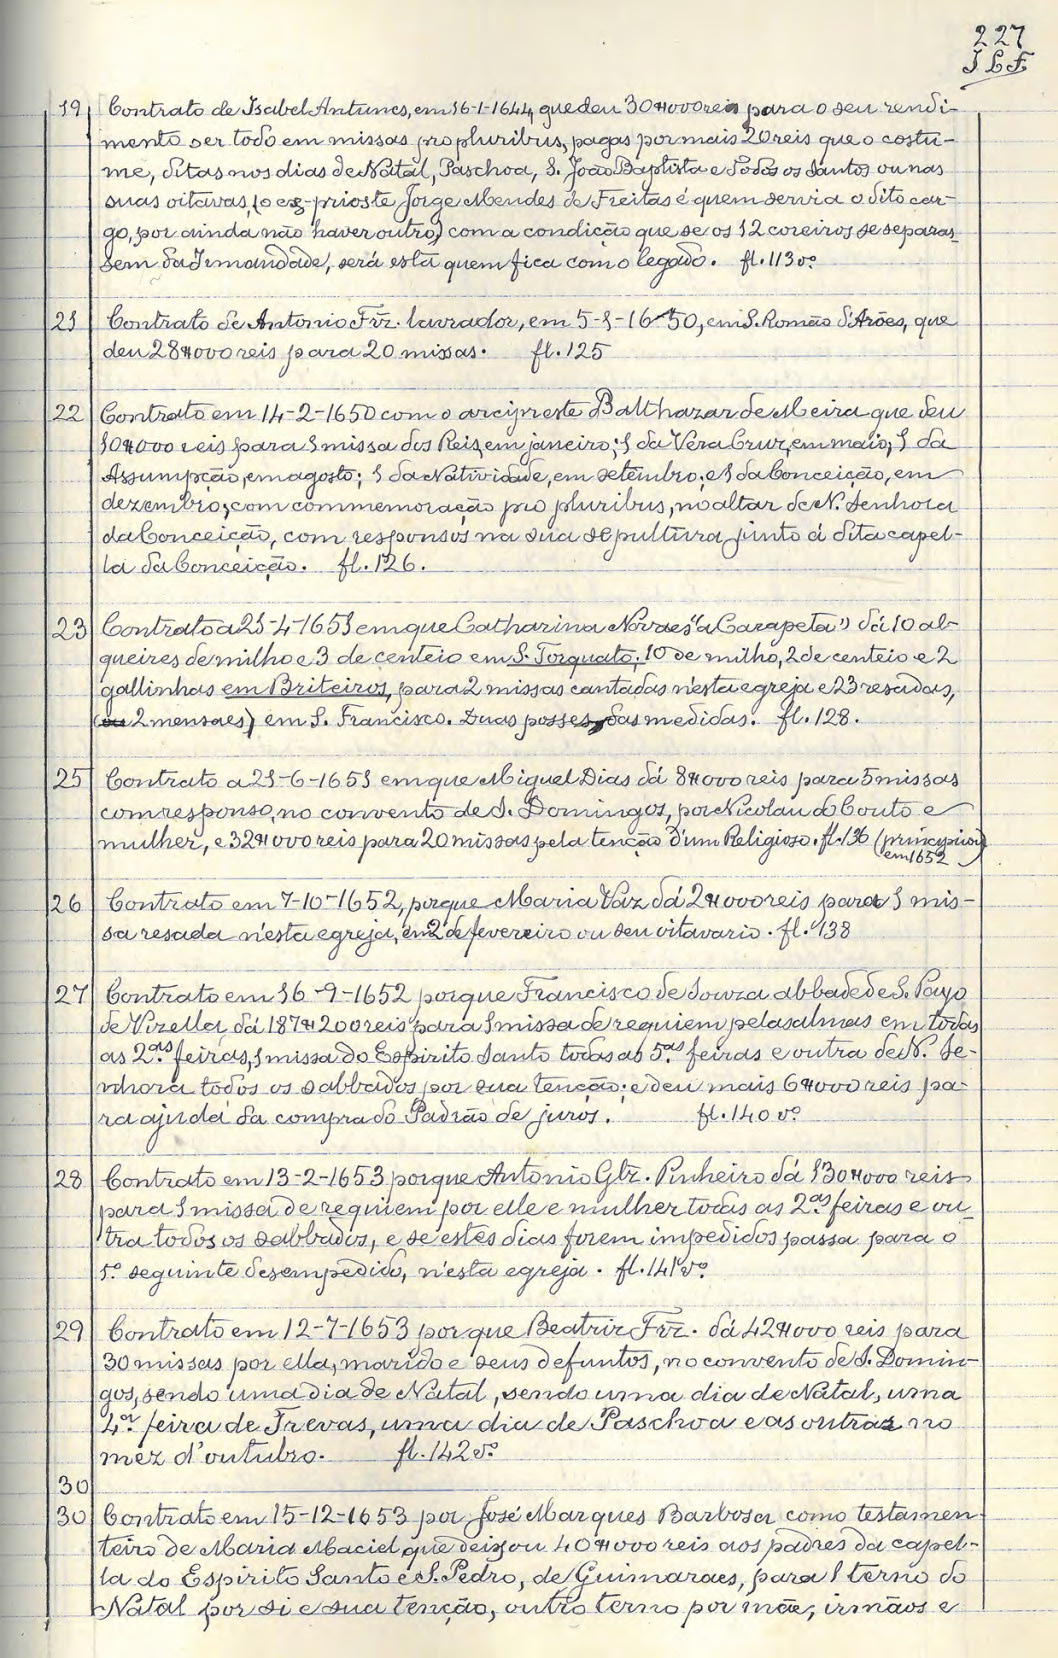 227
J L F
19 Contrato de Isabel Antunes, em 16-1-1644, que deu 30$000 reis para o seu rendi-
mento ser todo em missas pro pluribus, pagas por mais 20 reis que o costu-
me, ditas nos dias de Natal, Paschoa, S. João Baptista e Todos os Santos ou nas
suas oitavas, (o ex-prioste Jorge Mendes de Freitas é quem servia o dito car-
go, por ainda não haver outro) com a condição que se os 12 coreiros se separas-
sem da Irmandade, será esta quem fica com o legado. fl. 113 vº
21 Contrato de Antonio Frz. lavrador, em 5-1-1650, em S. Romão d'Arões, que
deu 28$000 reis para 20 missas. fl. 125
22 Contrato em 14-2-1650 com o arcipreste Balthazar de Meira que deu
10$000 reis para 1 missa dos Reis, em janeiro; 1 da Vera Cruz, em maio; 1 da
Assumpção, em agosto; 1 da Natividade, em setembro; e 1 da Conceição, em
dezembro; com commemoração pro pluribus, no altar de N. Senhora
da Conceição, com responsos na sua sepultura junto á dita capel-
la da Conceição. fl. 126.
23 Contrato a 21-4-1651 em que Catharina Novaes "a Carapeta" dá 10 al-
queires de milho e 3 de centeio em S. Torquato; 10 de milho, 2 de centeio e 2
gallinhas em Briteiros, para 2 missas cantadas n'esta egreja e 23 resadas,
(2 mensaes) em S. Francisco. Duas posses das medidas. fl. 128.
25 Contrato a 21-6-1651 em que Miguel Dias dá 8$000 reis para 5 missas
com responso, no convento de S. Domingos, por Nicolau do Couto e
mulher, e 32$000 reis para 20 missas pela tenção d'um Religioso. fl. 136 (principiou
em 1652)
26 Contrato em 7-10-1652, porque Maria Vaz dá 2$000 reis para 1 mis-
sa resada n'esta egreja, em 2 de fevereiro ou seu oitavario. fl. 138
27 Contrato em 16-9-1652 porque Francisco de Souza abbade de S. Payo
de Vizella, dá 187$200 reis para 1 missa de requiem pelas almas em todas
as 2.as feiras, 1 missa do Espirito Santo todas as 5.as feiras e outra de N. Se-
nhora todos os sabbados por sua tenção; e deu mais 6$000 reis pa-
ra ajuda da compra do Padrão de juros. fl. 140 vº
28 Contrato em 13-2-1653 porque Antonio Glz. Pinheiro dá 130$000 reis
para 1 missa de requiem por elle e mulher todas as 2.as feiras e ou-
tra todos os sabbados, e se estes dias forem impedidos passa para o
1º seguinte desempedido, n'esta egreja. fl. 141 vº
29 Contrato em 12-7-1653 por que Beatriz Frz. dá 42$000 reis para
30 missas por ella, marido e seus defuntos, no convento de S. Domin-
gos, sendo uma dia de Natal, sendo uma dia de Natal, uma
4.ª feira de Trevas, uma dia de Paschoa e as outras no
mez d'outubro. fl. 142 vº
30
30 Contrato em 15-12-1653 por José Marques Barbosa como testamen-
teiro de Maria Maciel que deixou 40$000 reis aos padres da capel-
la do Espirito Santo e S. Pedro, de Guimaraes, para 1 terno do
Natal por si e sua tenção, outro terno por mãe, irmãos e